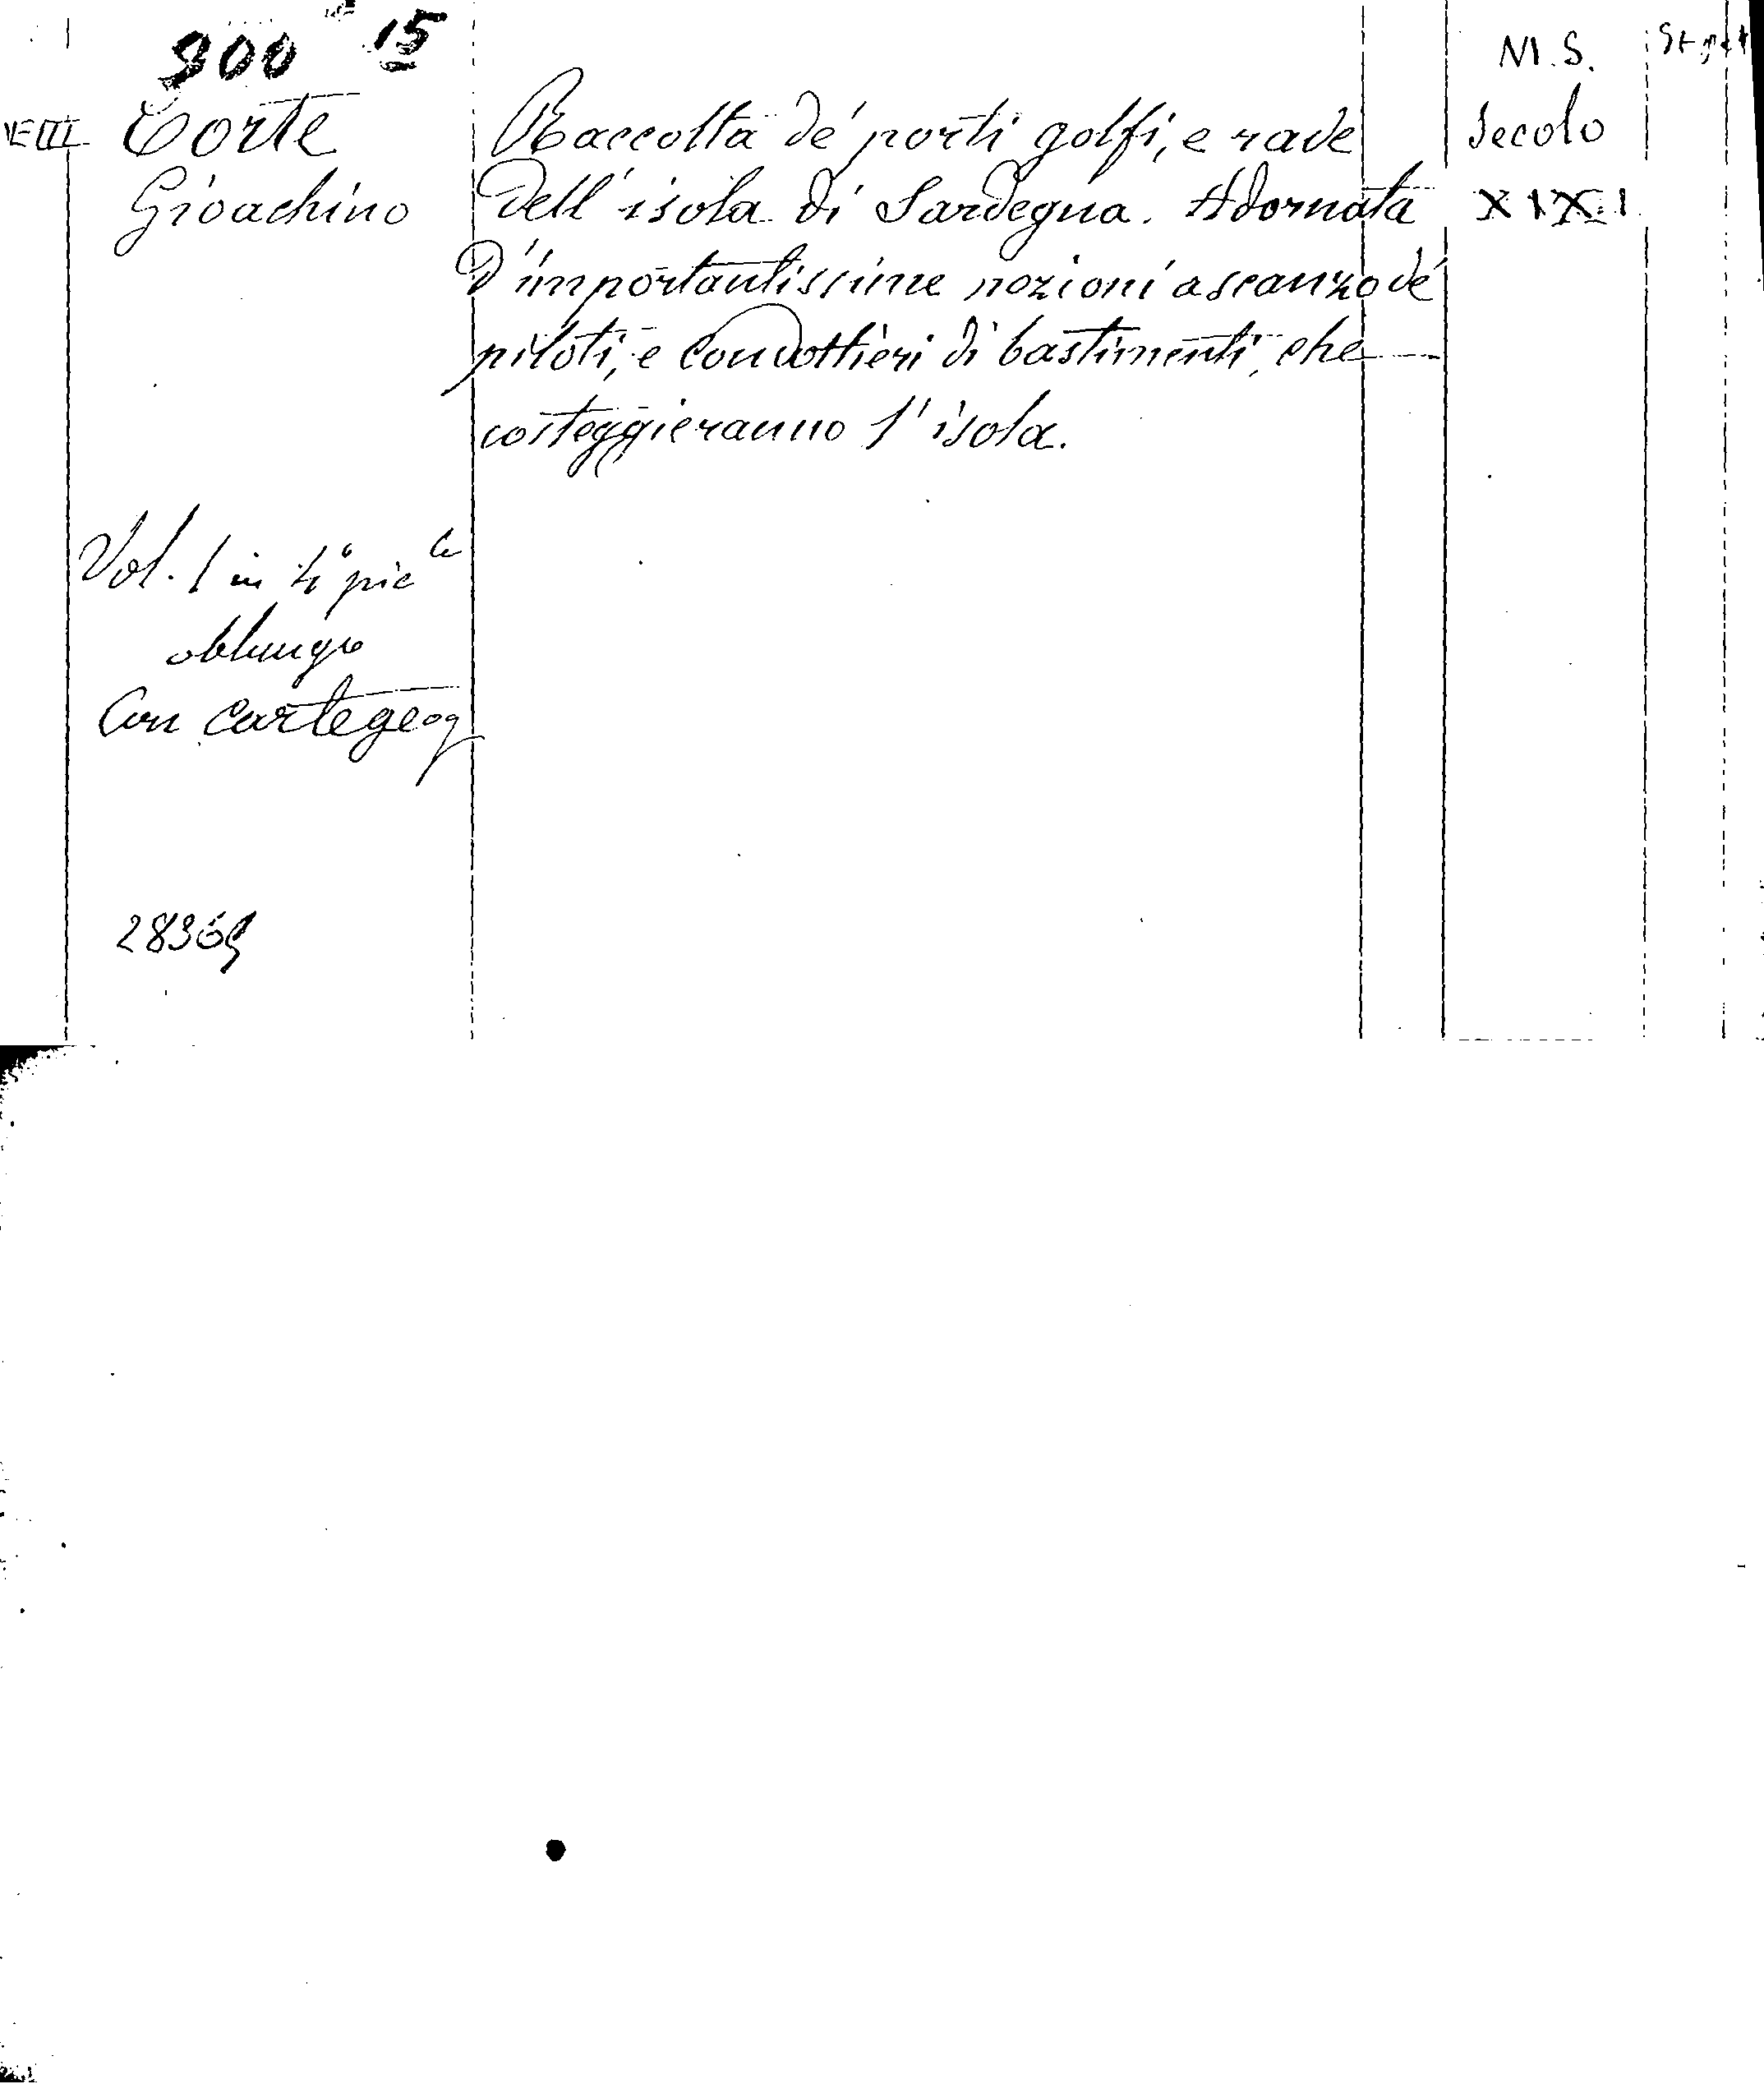 900 15
Corte
Gioachino
Raccolta de' porti golfi, e rade
dell'isola di Sardegna. Adornata
d'importantissime nozioni a scanzo de'
piloti, e condottieri di bastimenti, che
costeggieranno l'isola.
M.S.
Secolo
Vol. 1 in 4° pic le
oblungo
Con carte geog
28369